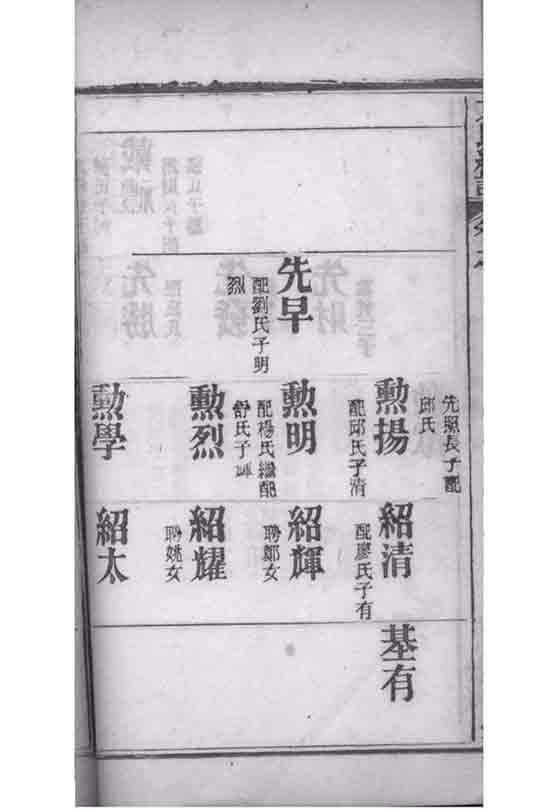 先早
配劉氏子明
烈
先照長子配
邱氏
勲揚
配邱氏子清
勲明
配楊氏繼配
舒氏子輝
勲烈
勲學
紹清
配廖氏子有
紹輝
聘鄭女
紹耀
聘姚女
紹太
基有